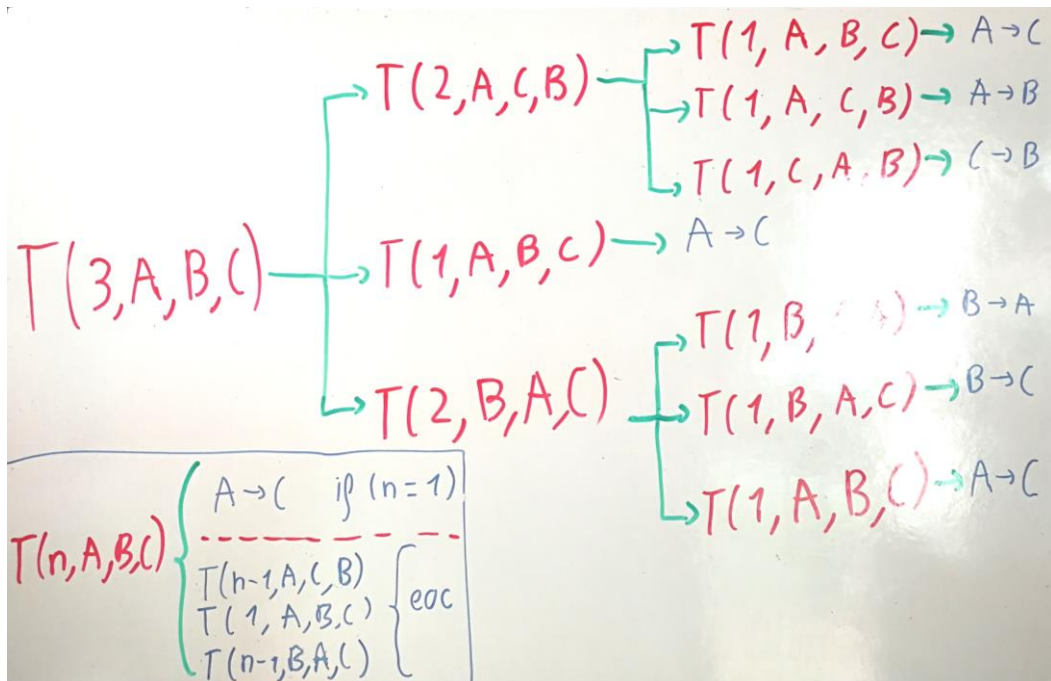 T(1, A, B, C) → A → C
T(2, A, C, B)
T(1, A, C, B) → A → B
T(1, C, A, B) → C → B
T(3, A, B, C)
T(1, A, B, C) → A → C
T(1, B, ) → B → A
T(2, B, A, C)
T(1, B, A, C) → B → C
T(1, A, B, C) → A → C
T(n, A, B, C)
A → C if (n = 1)
T(n-1, A, C, B)
T(1, A, B, C)
T(n-1, B, A, C)
eoc